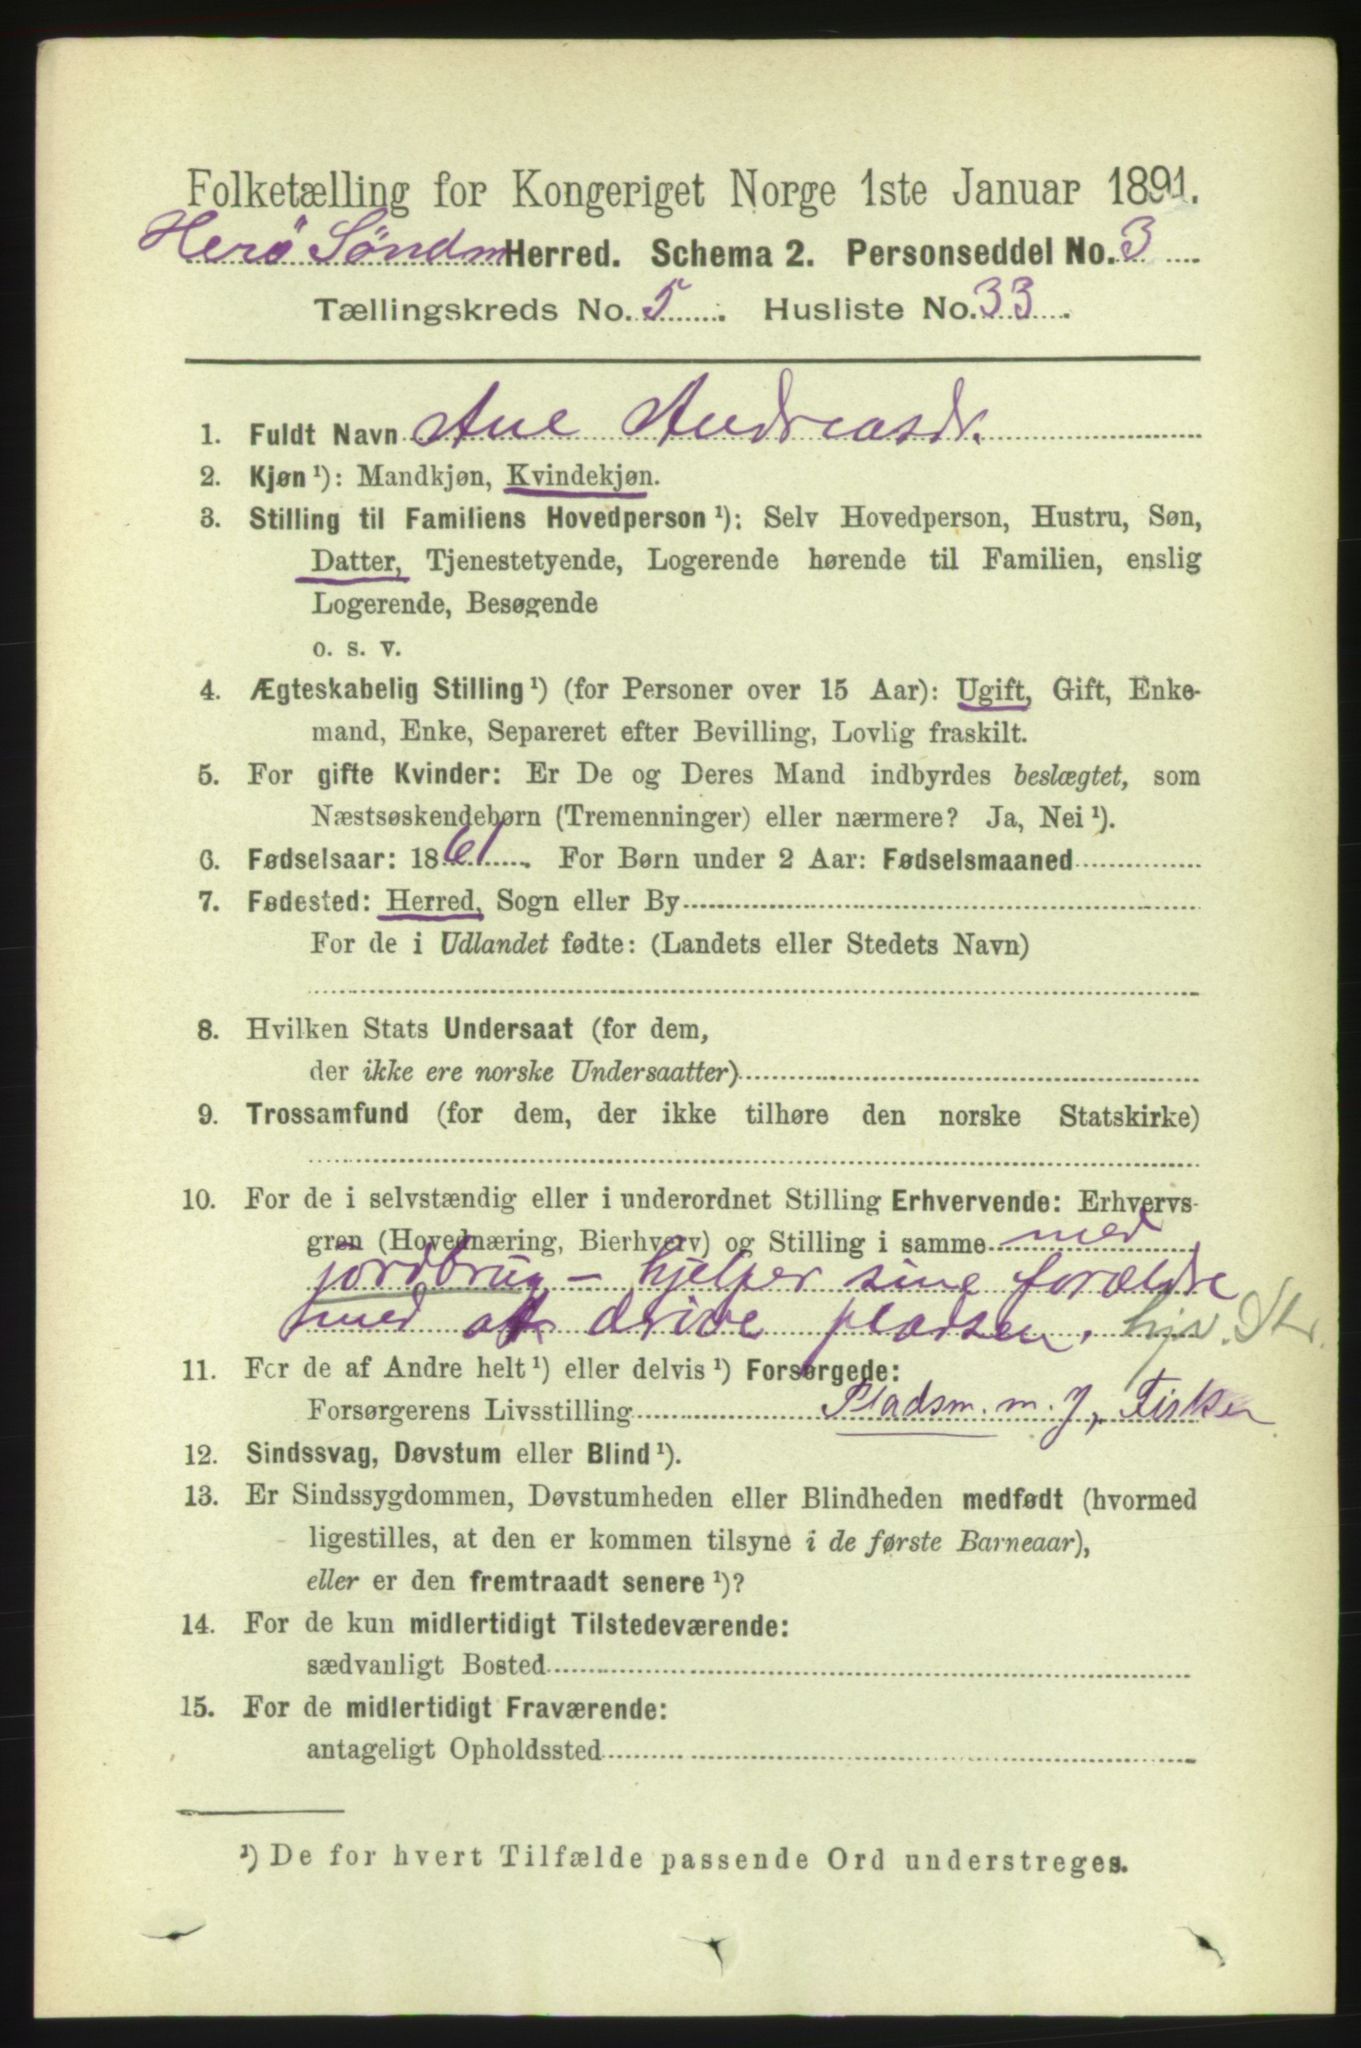 Folketælling for Kongeriget Norge 1ste Januar 1891.
Herö Söndm Herred. Schema 2. Personseddel No. 3
Tællingskreds No. 5. Husliste No. 33.
1. Fuldt Navn Ane Andreasdr.
2. Kjøn ¹): Mandkjøn, Kvindekjøn.
3. Stilling til Familiens Hovedperson ¹): Selv Hovedperson, Hustru, Søn,
Datter, Tjenestetyende, Logerende hørende til Familien, enslig
Logerende, Besøgende
o. s. v.
4. Ægteskabelig Stilling ¹) (for Personer over 15 Aar): Ugift, Gift, Enke-
mand, Enke, Separeret efter Bevilling, Lovlig fraskilt.
5. For gifte Kvinder: Er De og Deres Mand indbyrdes beslægtet, som
Næstsøskendebørn (Tremenninger) eller nærmere? Ja, Nei ¹).
6. Fødselsaar: 1861. For Børn under 2 Aar: Fødselsmaaned
7. Fødested: Herred, Sogn eller By
For de i Udlandet fødte: (Landets eller Stedets Navn)
8. Hvilken Stats Undersaat (for dem,
der ikke ere norske Undersaatter)
9. Trossamfund (for dem, der ikke tilhøre den norske Statskirke)
10. For de i selvstændig eller i underordnet Stilling Erhvervende: Erhvervs-
gren (Hovednæring, Bierhverv) og Stilling i samme med
jordbrug - hjelper sine forældre
med at drive pladsen. hjv. Str.
11. For de af Andre helt ¹) eller delvis ¹) Forsørgede:
Forsørgerens Livsstilling Pladsm. m. J, Fisker
12. Sindssvag, Døvstum eller Blind ¹).
13. Er Sindssygdommen, Døvstumheden eller Blindheden medfødt (hvormed
ligestilles, at den er kommen tilsyne i de første Barneaar),
eller er den fremtraadt senere ¹)?
14. For de kun midlertidigt Tilstedeværende:
sædvanligt Bosted
15. For de midlertidigt Fraværende:
antageligt Opholdssted
¹) De for hvert Tilfælde passende Ord understreges.